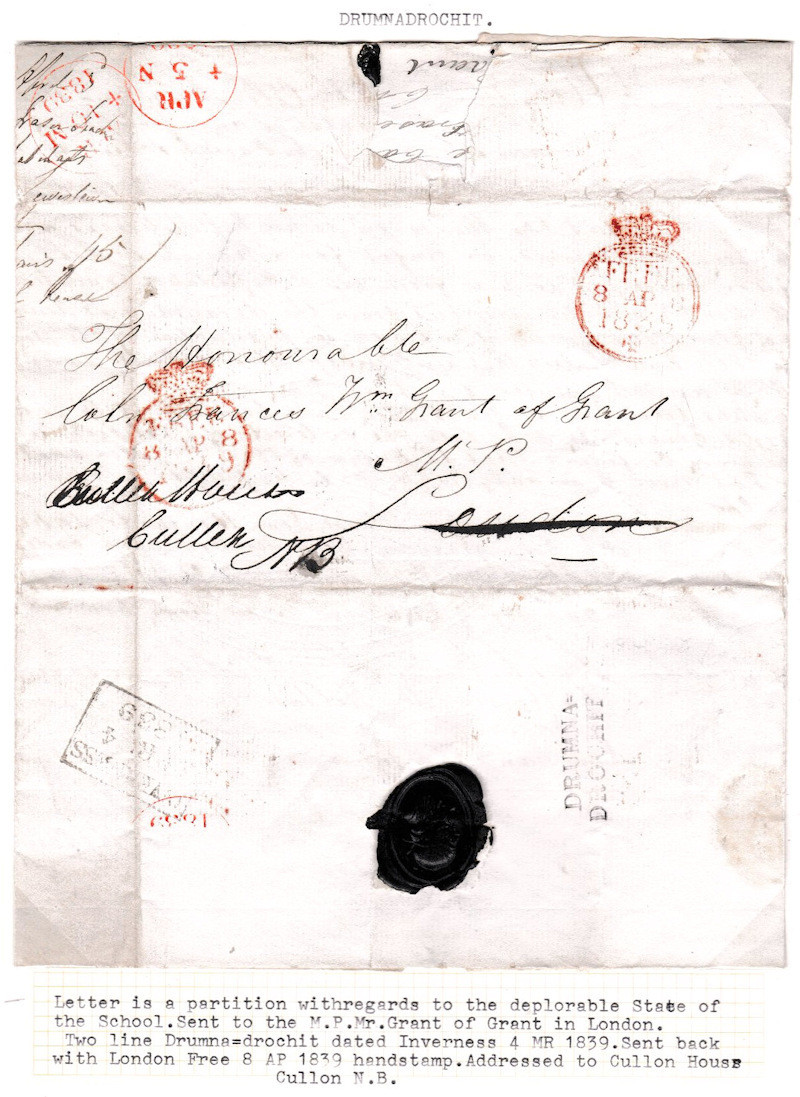 DRUMNADROCHIT.
APR
5 N
1839
The Honourable
Coln Frances Wm Grant of Grant
M.P.
London
Cullen House
Cullen NB
FREE
8 AP 8
1839
8 AP 8
1839
DRUMNA=
DROCHIT
1839
Letter is a partition withregards to the deplorable State of
the School.Sent to the M.P.Mr.Grant of Grant in London.
Two line Drumna=drochit dated Inverness 4 MR 1839.Sent back
with London Free 8 AP 1839 handstamp.Addressed to Cullon House
Cullon N.B.